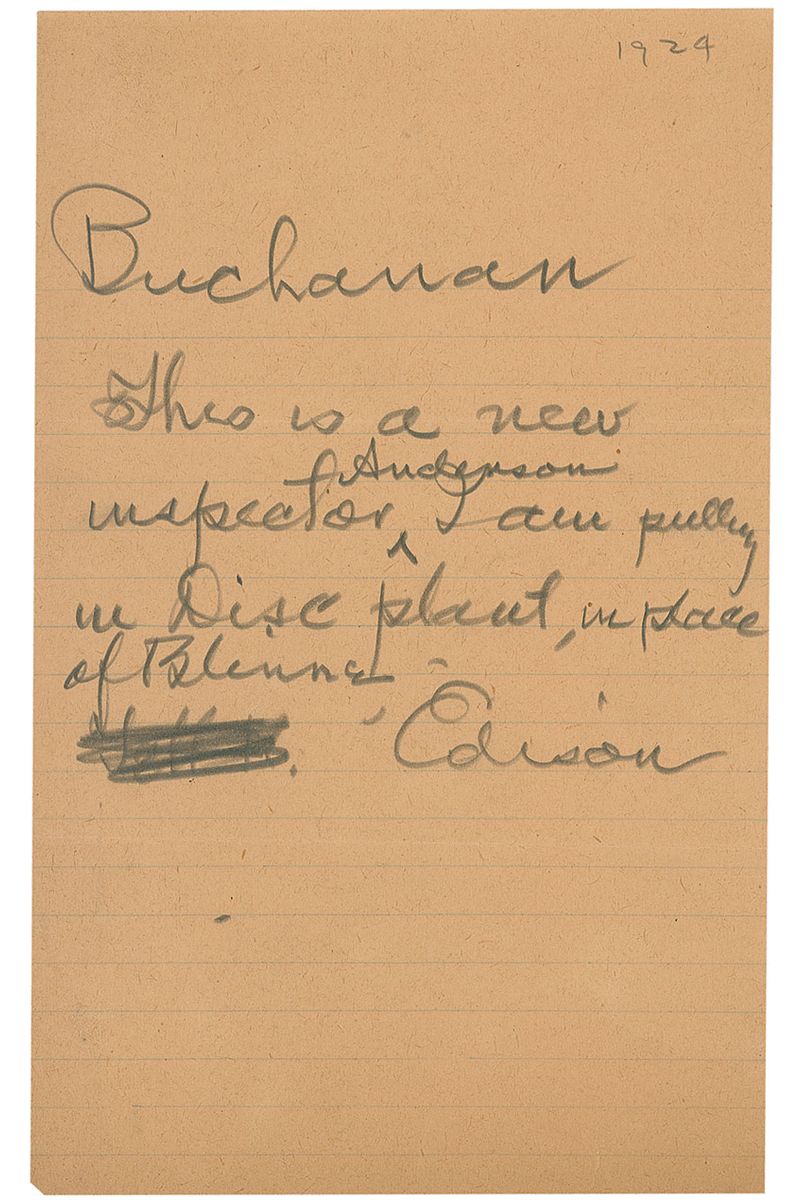 1924
Buchanan
This is a new
Anderson
inspector ^ I am putting
in Disc plant, in place
of
Edison